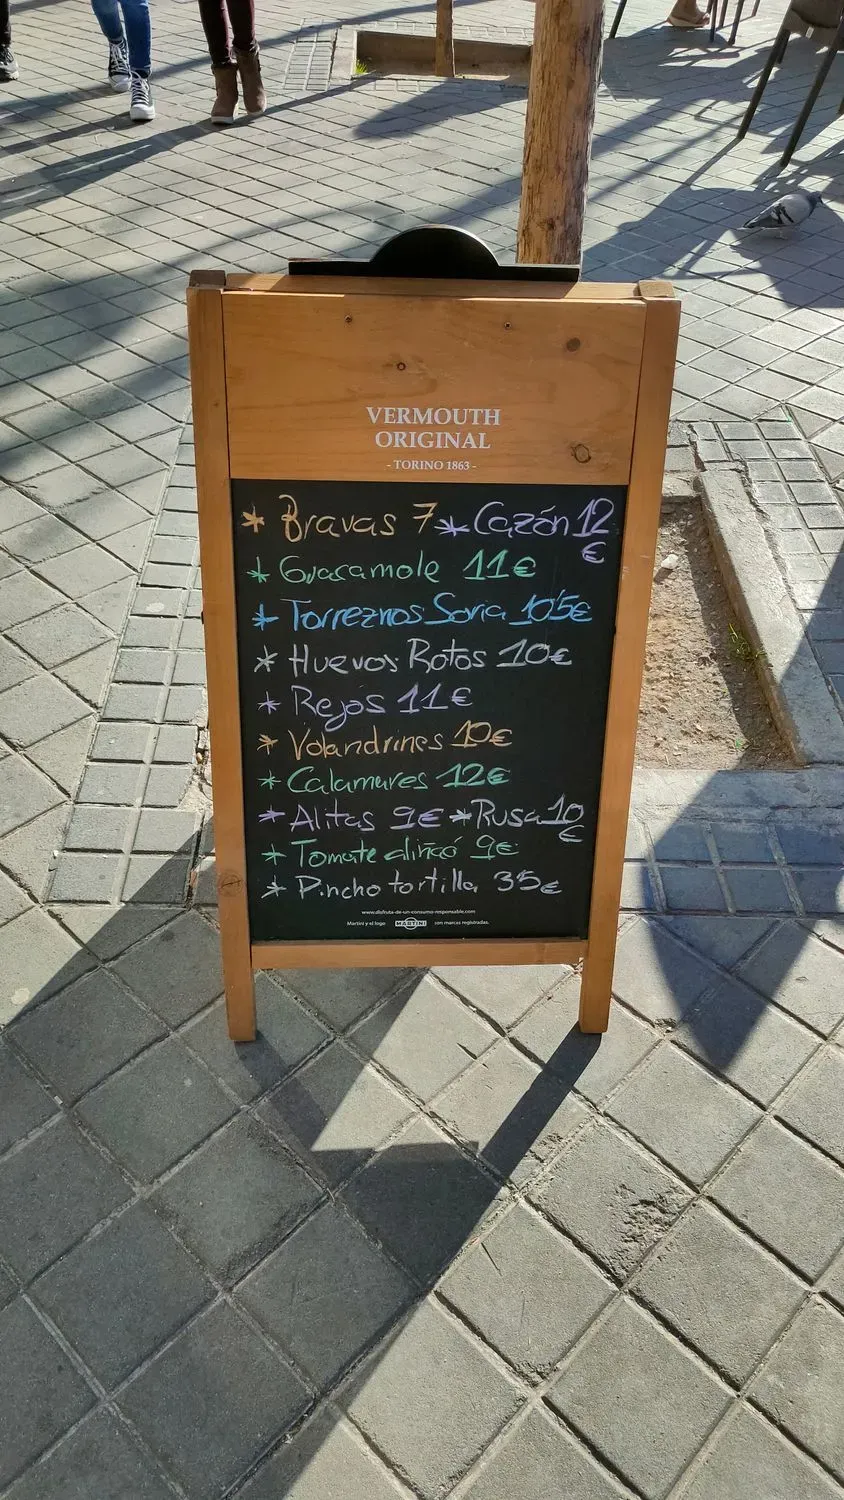 VERMOUTH
ORIGINAL
- TORINO 1863 -
* Bravas 7 * Cazón 12
€
* Guacamole 11€
* Torreznos Soria 10'5€
* Huevos Rotos 10€
* Rejos 11€
* Volandrines 10€
* Calamares 12€
* Alitas 9€ * Rusa 10
€
* Tomate aliñao 9€
* Pincho tortilla 3'5€
www.disfruta-de-un-consumo-responsable.com
Martini y el logo MARTINI son marcas registradas.